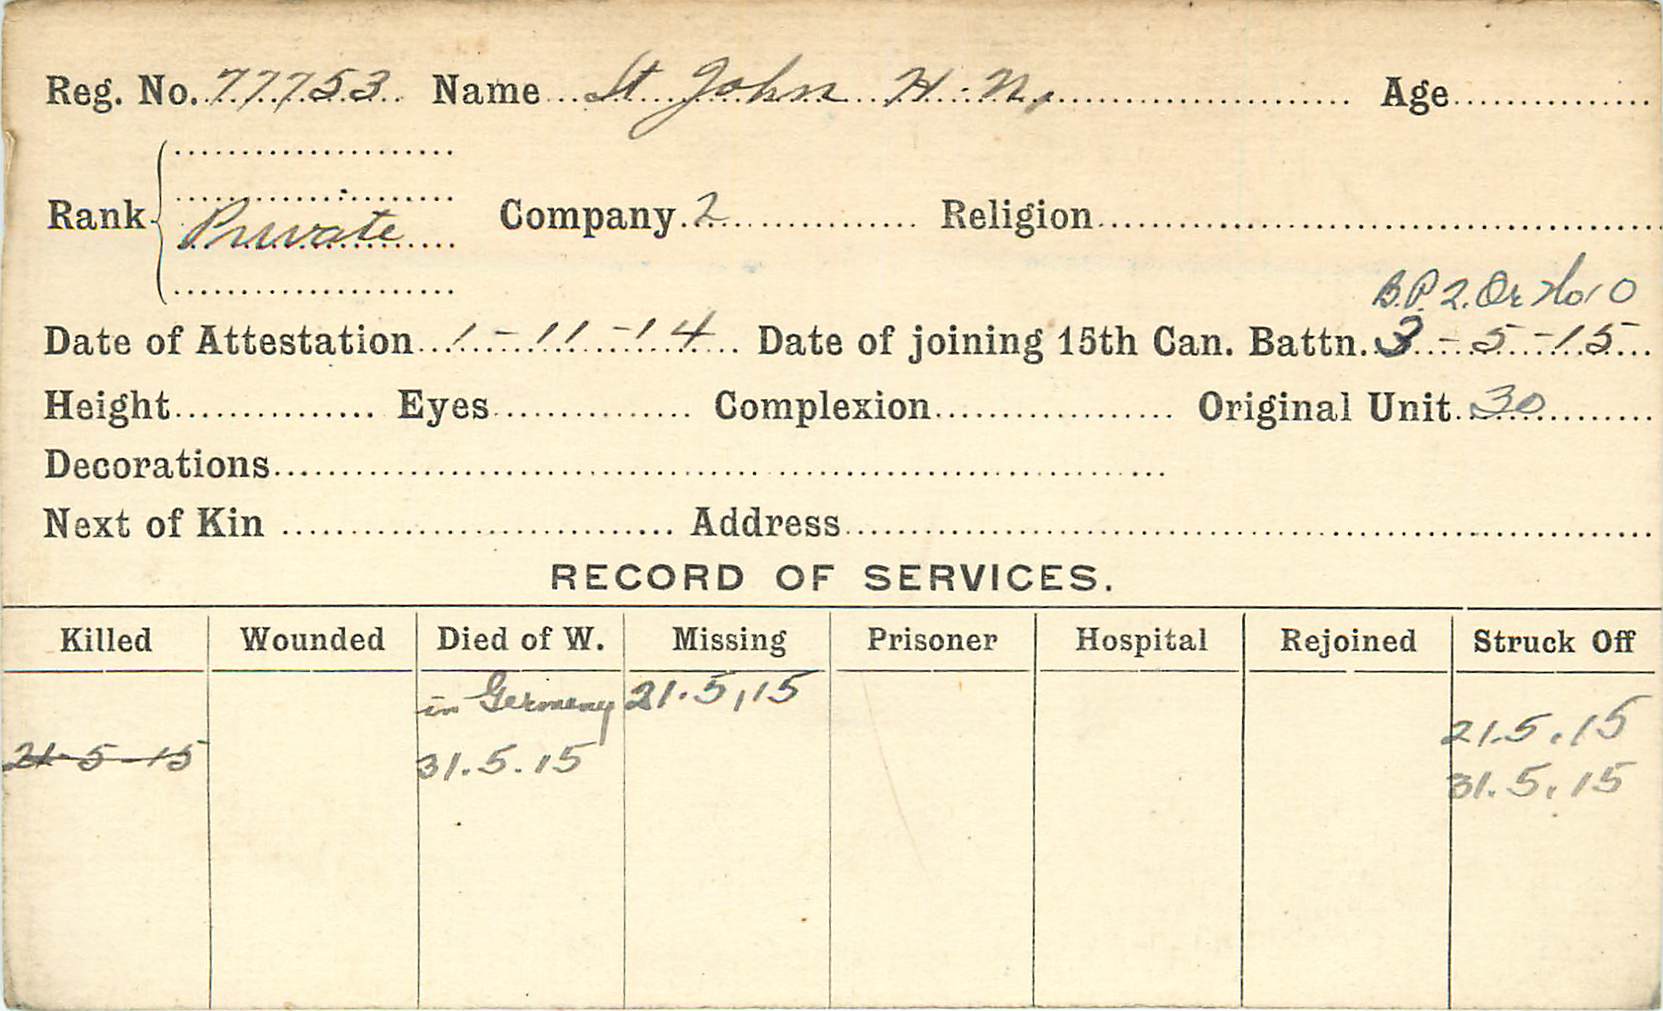 Reg. No. 77753 Name St John H. N. Age
Rank Private Company 2 Religion
B.P. 2. Or No. 0
Date of Attestation 1-11-14 Date of joining 15th Can. Battn. 3-5-15
Height Eyes Complexion Original Unit 30
Decorations
Next of Kin Address
RECORD OF SERVICES.
Killed Wounded Died of W. Missing Prisoner Hospital Rejoined Struck Off
in Germany 21.5.15
21.5.15
21-5-15 31.5.15
31.5.15